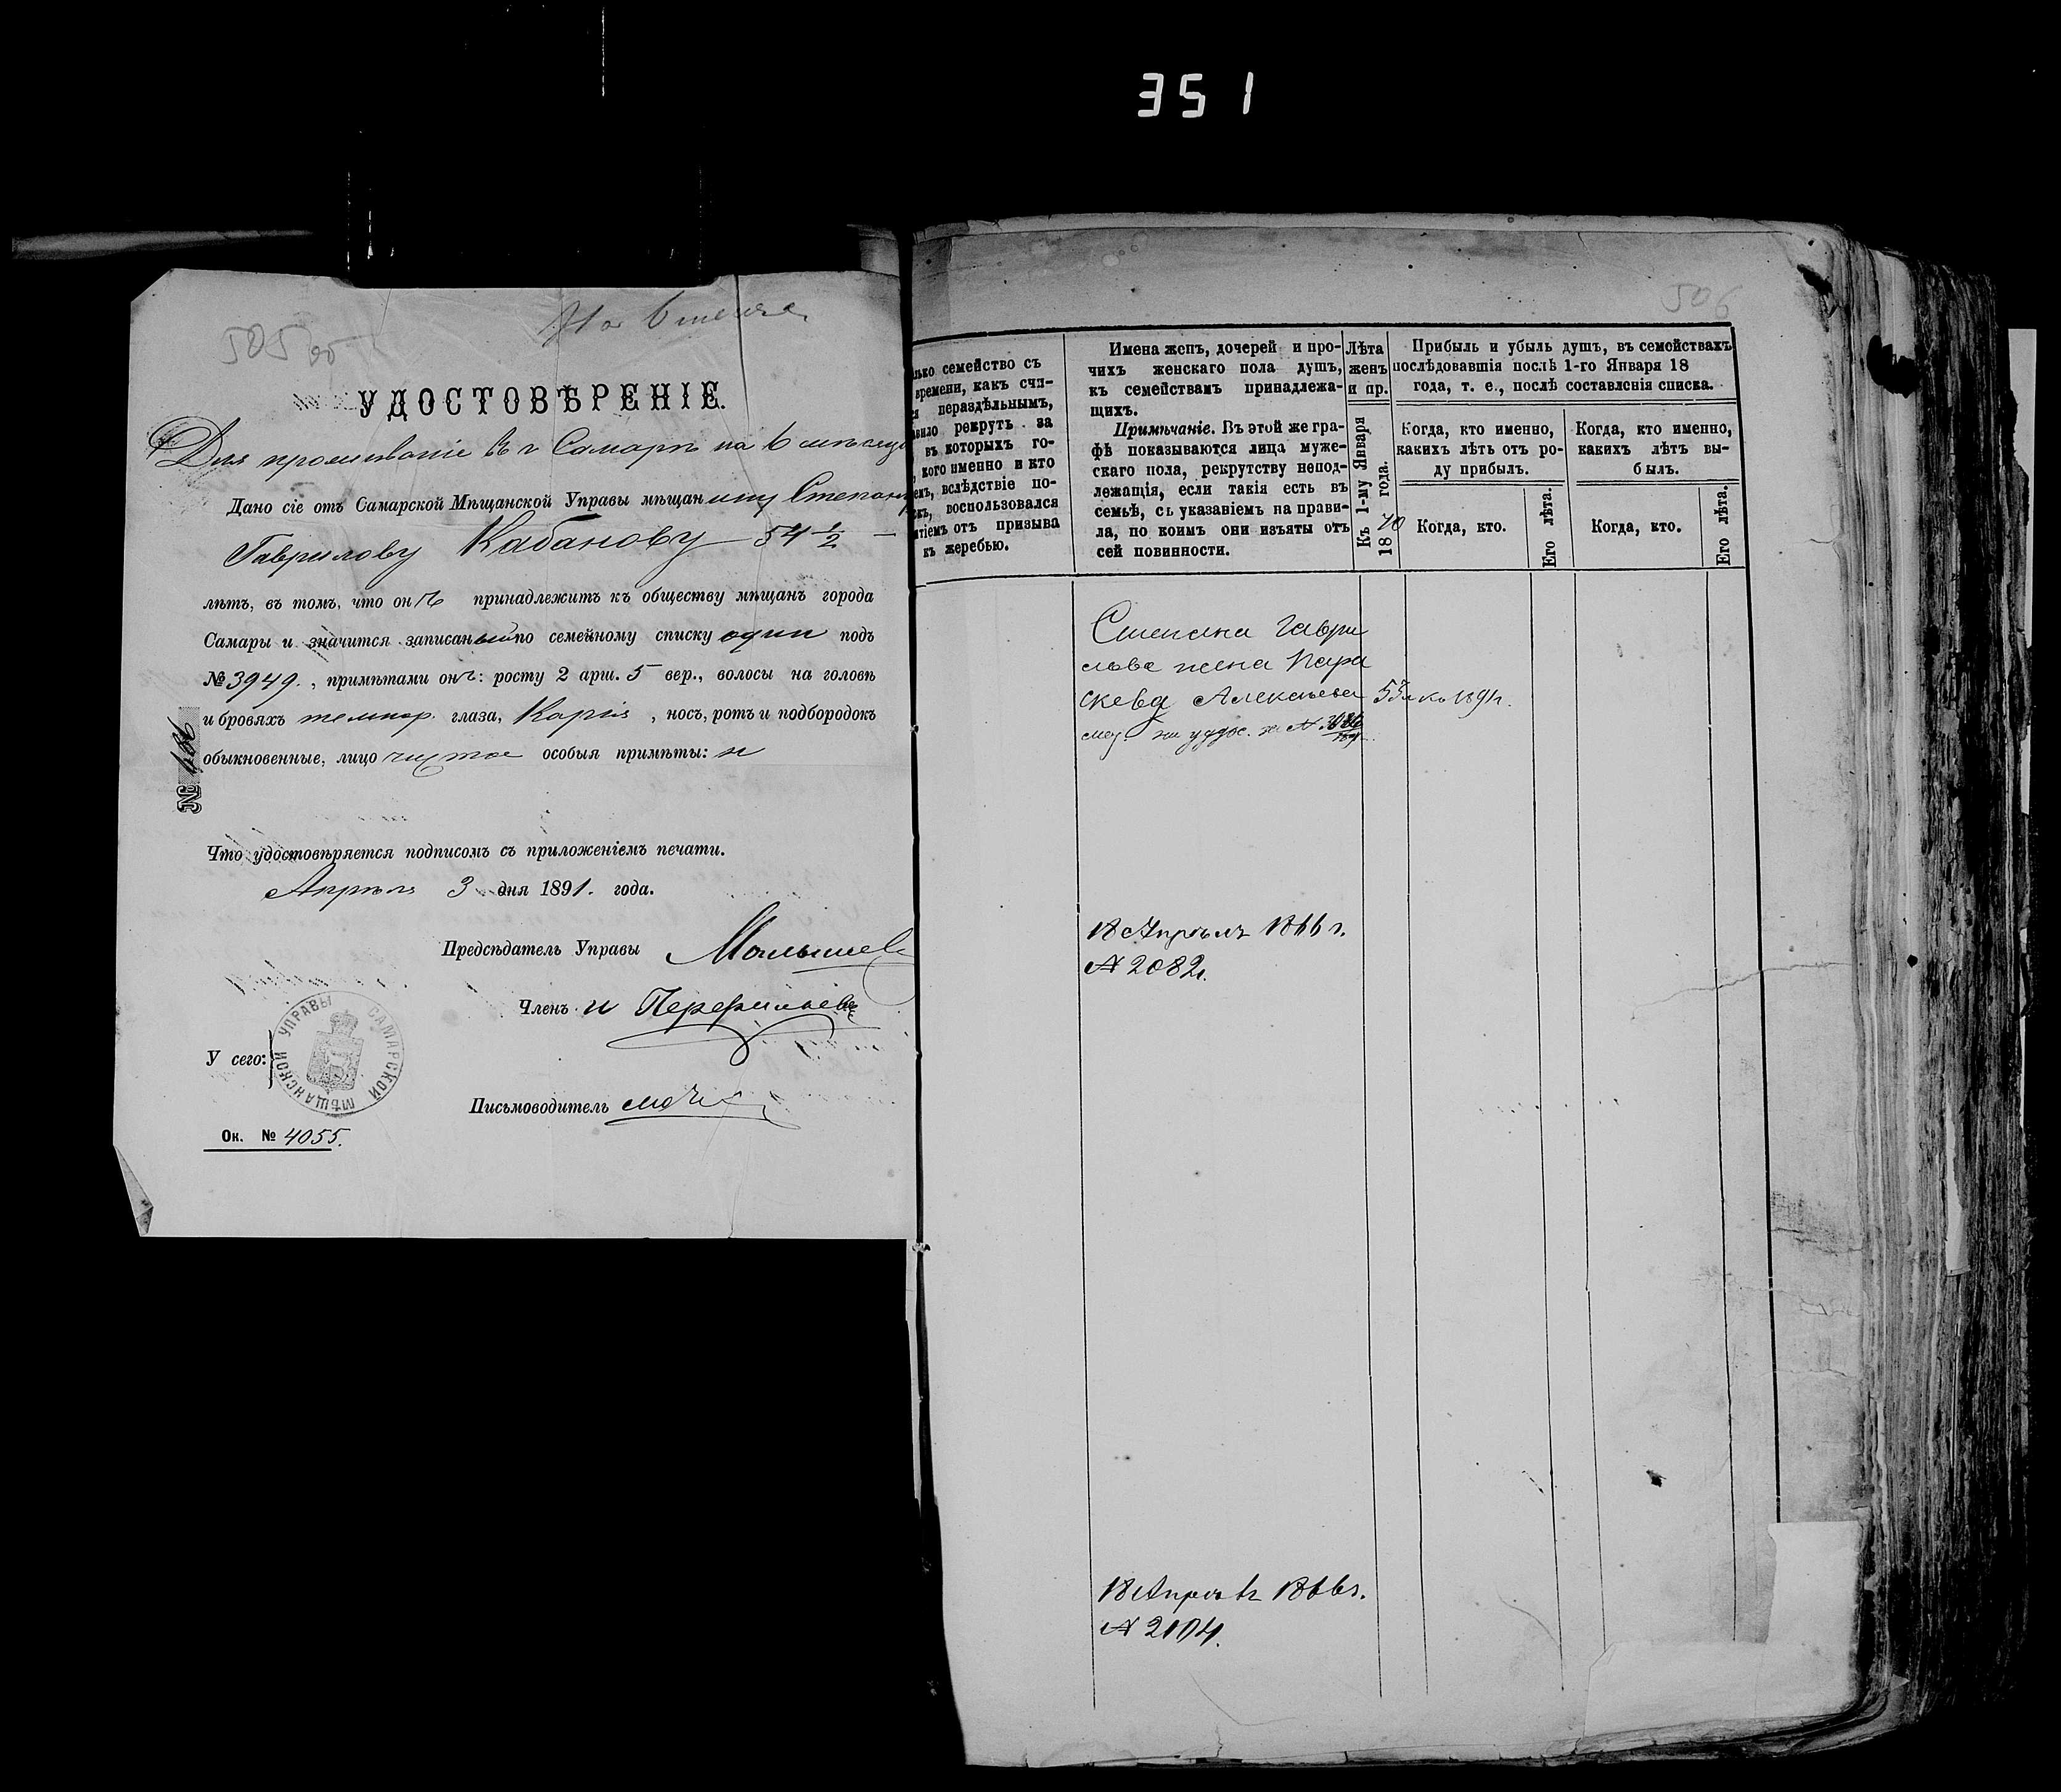 351
505 об
На 6 месяц.
УДОСТОВѢРЕНІЕ.
Для проживаніе в г Самарѣ на 6 мѣсяце
Дано сіе отъ Самарской Мѣщанской Управы мѣщанину Степану
Гаврилову Кабанову 54 1/2
лѣтъ, въ томъ, что онъ принадлежитъ къ обществу мѣщанъ города
Самары и значится записаный по семейному списку один подъ
№ 3949., примѣтами онъ: росту 2 арш. 5 вер., волосы на головѣ
и бровяхъ темнор. глаза, Карія, носъ, ротъ и подбородокъ
обыкновенные, лицо чистое особыя примѣты: н
№
Что удостовѣряется подписомъ съ приложеніемъ печати.
Апрѣля 3 дня 1891. года.
Предсѣдатель Управы Малышев
Членъ И Перфильев
У сего:
САМАРСКОЙ МѢЩАНСКОЙ УПРАВЫ
Письмоводитель
Ок. № 4055.
506
лько семейство съ
времени, какъ счи-
я нераздѣльнымъ,
вило рекрутъ за
въ которыхъ го-
, кого именно и кто
емъ, вслѣдствіе по-
скъ, воспользовался
ятіемъ отъ призыва
къ жеребью.
Имена женъ, дочерей и про-
чихъ женскаго пола душъ,
къ семействамъ принадлежа-
щихъ.
Примѣчаніе. Въ этой же гра-
фѣ показываются лица муже-
скаго пола, рекрутству непод-
лежащія, если такія есть въ
семьѣ, съ указаніемъ на прави-
ла, по коимъ они изъяты отъ
сей повинности.
Лѣта
женъ
и пр.
Къ 1-му Января
1870 года.
Прибыль и убыль душъ, въ семействахъ
послѣдовавшія послѣ 1-го Января 18
года, т. е., послѣ составленія списка.
Когда, кто именно,
каких лѣтъ отъ ро-
ду прибылъ.
Когда, кто именно,
каких лѣтъ вы-
былъ.
Когда, кто.
Его лѣта.
Когда, кто.
Его лѣта.
Степана Гаври
лова жена Пара
скева Алексѣева 53 л къ 1891 г.
18 Апрѣля 1866 г.
№ 2082.
18 Апрѣля 1866 г.
№ 2104.